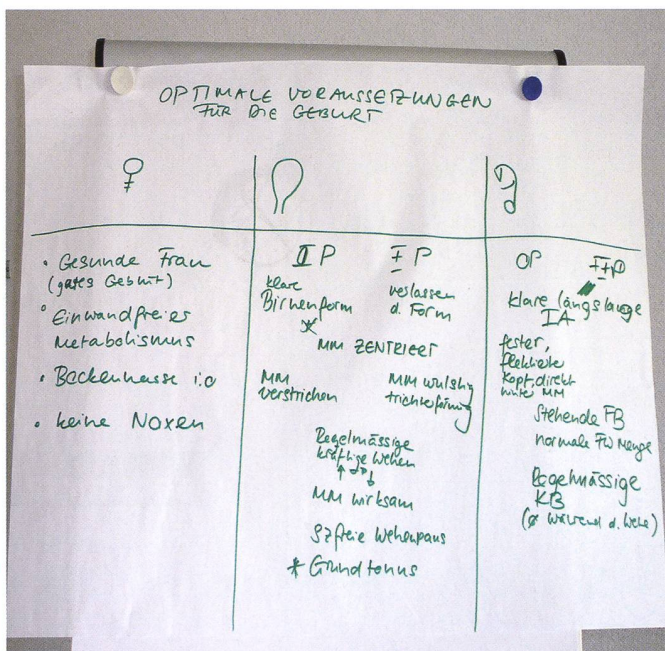 OPTIMALE VORAUSSETZUNGEN
FÜR DIE GEBURT
♀
• Gesunde Frau
(gutes Geburt)
• Einwandfreier
Metabolismus
• Beckenmasse i.o
• keine Noxen
II P
klare
Birnenform
*
I P
verlassen
d. Form
MM ZENTRIERT
MM
verstrichen
MM wulstig
trichterförmig
Regelmässige
kräftige Wehen
MM wirksam
Sz freie Wehenpaus
* Grundtonus
OP
klare Längslage
IA
fester,
flektierter
Kopf, direkt
hinter MM
Stehende FB
normale FW Menge
Regelmässige
KB
(ø während d. Wehe)